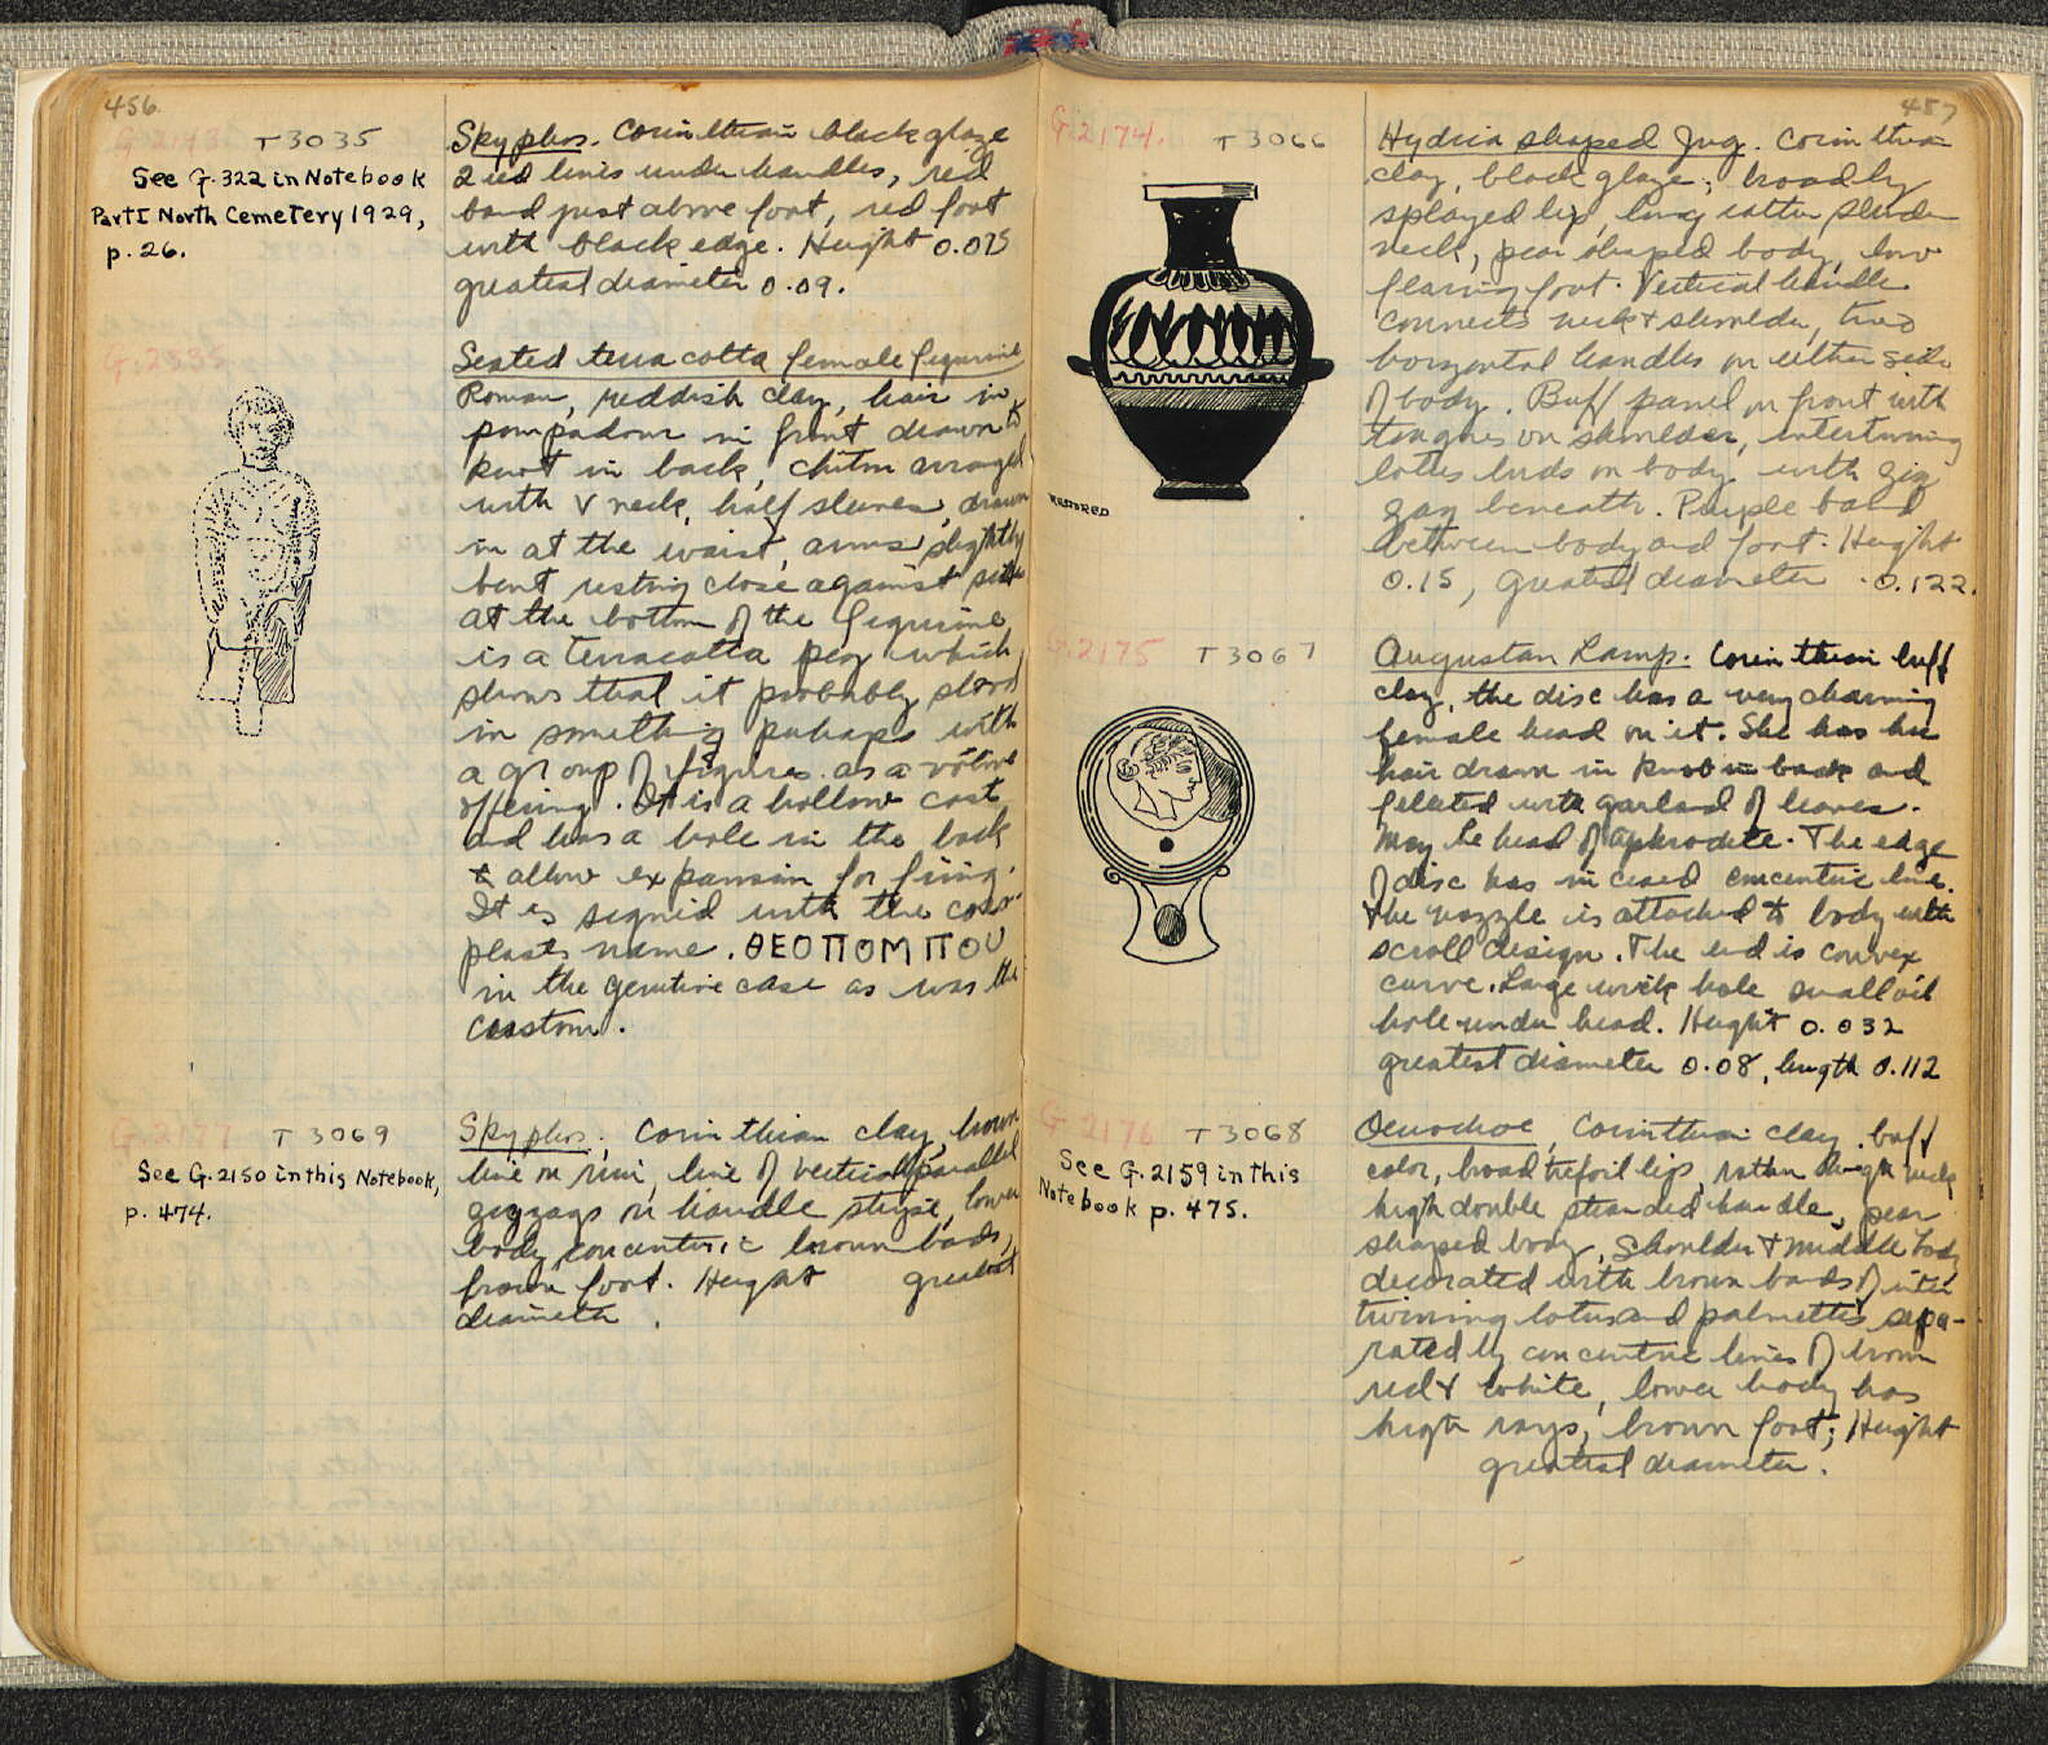 456.
G. 2143
T 3035
See G. 322 in Notebook
Part I North Cemetery 1929,
p. 26.
Skyphos. Corinthian black glaze
2 red lines under handles, red
band just above foot, red foot
with black edge. Height 0.075
greatest diameter 0.09.
Seated terra cotta female figurine
Roman, reddish clay, hair in
pompadour in front drawn to
knot in back, chiton arranged
with V neck, half sleeves, drawn
in at the waist, arms slightly
bent resting close against sides
at the bottom of the figurine
is a terracotta peg which
shows that it probably stood
in something perhaps with
a group of figures as a votive
offering. It is a hollow cast
and has a hole in the back
to allow expansion for firing.
It is signed with the coro-
plasts name. ΘΕΟΠΟΜΠΟΥ
in the genitive case as was the
custom.
G. 2177
T 3069
See G. 2150 in this Notebook,
p. 474.
Skyphos, Corinthian clay, brown
line on rim, line of vertical parallel
zigzags on handle stripe, lower
body concentric brown bands,
brown foot. Height greatest
diameter .
457
G. 2174.
T 3066
RESTORED
Hydria shaped Jug. Corinthian
clay, black glaze; broadly
splayed lip, long rather slender
neck, pear shaped body, low
flaring foot. Vertical handle
connects neck & shoulder, two
horizontal handles on either side
of body. Buff panel on front with
tongues on shoulder, intertwining
lotus buds on body with zig
zag beneath. Purple band
between body and foot. Height
0.15, greatest diameter 0.122.
G. 2175
T 3067
Augustan Lamp. Corinthian buff
clay, the disc has a very charming
female head on it. She has her
hair drawn in knot in back and
filleted with garland of leaves.
May be head of Aphrodite. The edge
of disc has incised concentric lines.
The nozzle is attached to body with
scroll design. The end is convex
curve. Large wick hole small oil
hole under head. Height 0.032
greatest diameter 0.08, length 0.112
G. 2176
T 3068
See G. 2159 in this
Notebook p. 475.
Oenochoe, Corinthian clay, buff
color, broad trefoil lip, rather high neck
high double stranded handle, pear
shaped body, shoulder & middle body
decorated with brown bands of inter
twining lotus and palmettes sepa-
rated by concentric lines of brown
red & white, lower body has
high rays, brown foot; Height
greatest diameter.